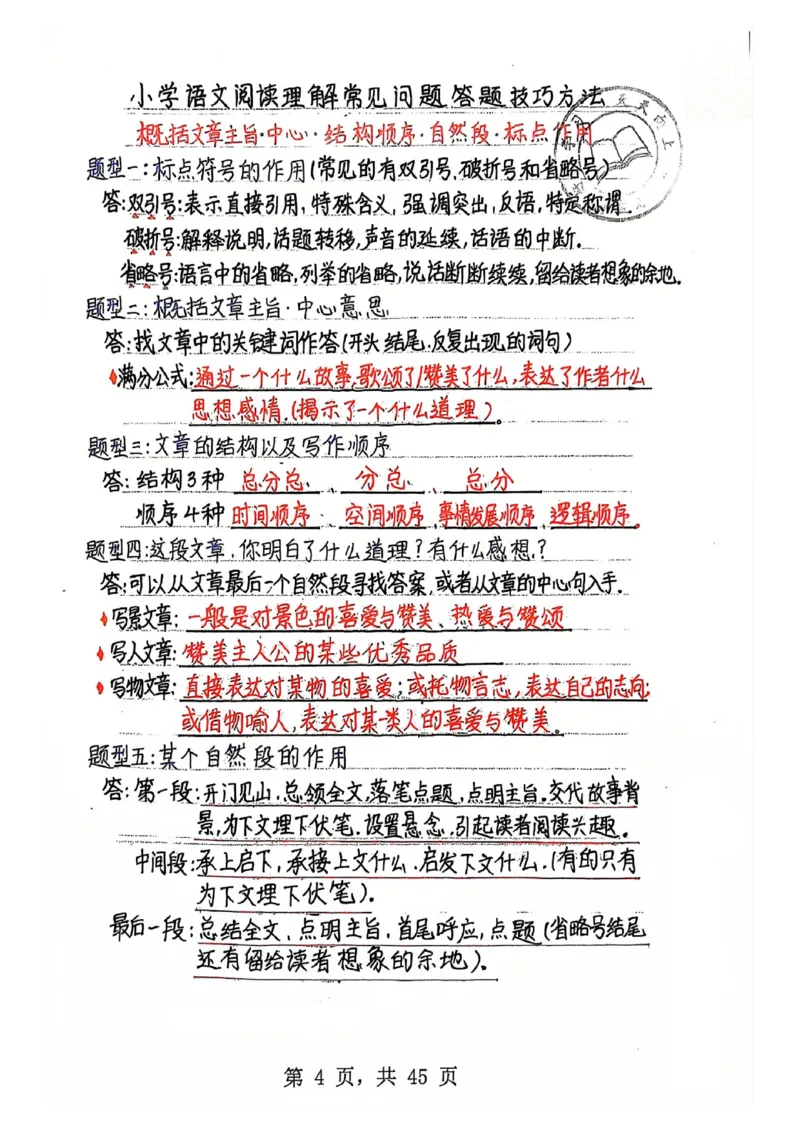 小学语文阅读理解常见问题答题技巧方法
概括文章主旨·中心·结构顺序·自然段·标点作用
题型一:标点符号的作用(常见的有双引号、破折号和省略号)
答:双引号:表示直接引用,特殊含义,强调突出,反语,特定称谓.
破折号:解释说明,话题转移,声音的延续,话语的中断.
省略号:语言中的省略,列举的省略,说话断断续续,留给读者想象的余地.
题型二:概括文章主旨·中心意思
答:找文章中的关键词作答(开头结尾.反复出现的词句)
满分公式:通过一个什么故事,歌颂了/赞美了什么,表达了作者什么
思想感情.(揭示了一个什么道理)。
题型三:文章的结构以及写作顺序
答:结构3种 总分总、分总、总分
顺序4种 时间顺序、空间顺序,事情发展顺序,逻辑顺序。
题型四:这段文章.你明白了什么道理?有什么感想?
答:可以从文章最后一个自然段寻找答案,或者从文章的中心句入手.
写景文章:一般是对景色的喜爱与赞美、热爱与赞颂
写人文章:赞美主人公的某些优秀品质
写物文章:直接表达对某物的喜爱;或托物言志,表达自己的志向;
或借物喻人,表达对某一类人的喜爱与赞美。
题型五:某个自然段的作用
答:第一段:开门见山.总领全文,落笔点题,点明主旨.交代故事背
景,为下文埋下伏笔.设置悬念,引起读者阅读兴趣.
中间段:承上启下,承接上文什么.启发下文什么.(有的只有
为下文埋下伏笔).
最后一段:总结全文、点明主旨,首尾呼应,点题(省略号结尾
还有留给读者想象的余地).
第 4 页，共 45 页